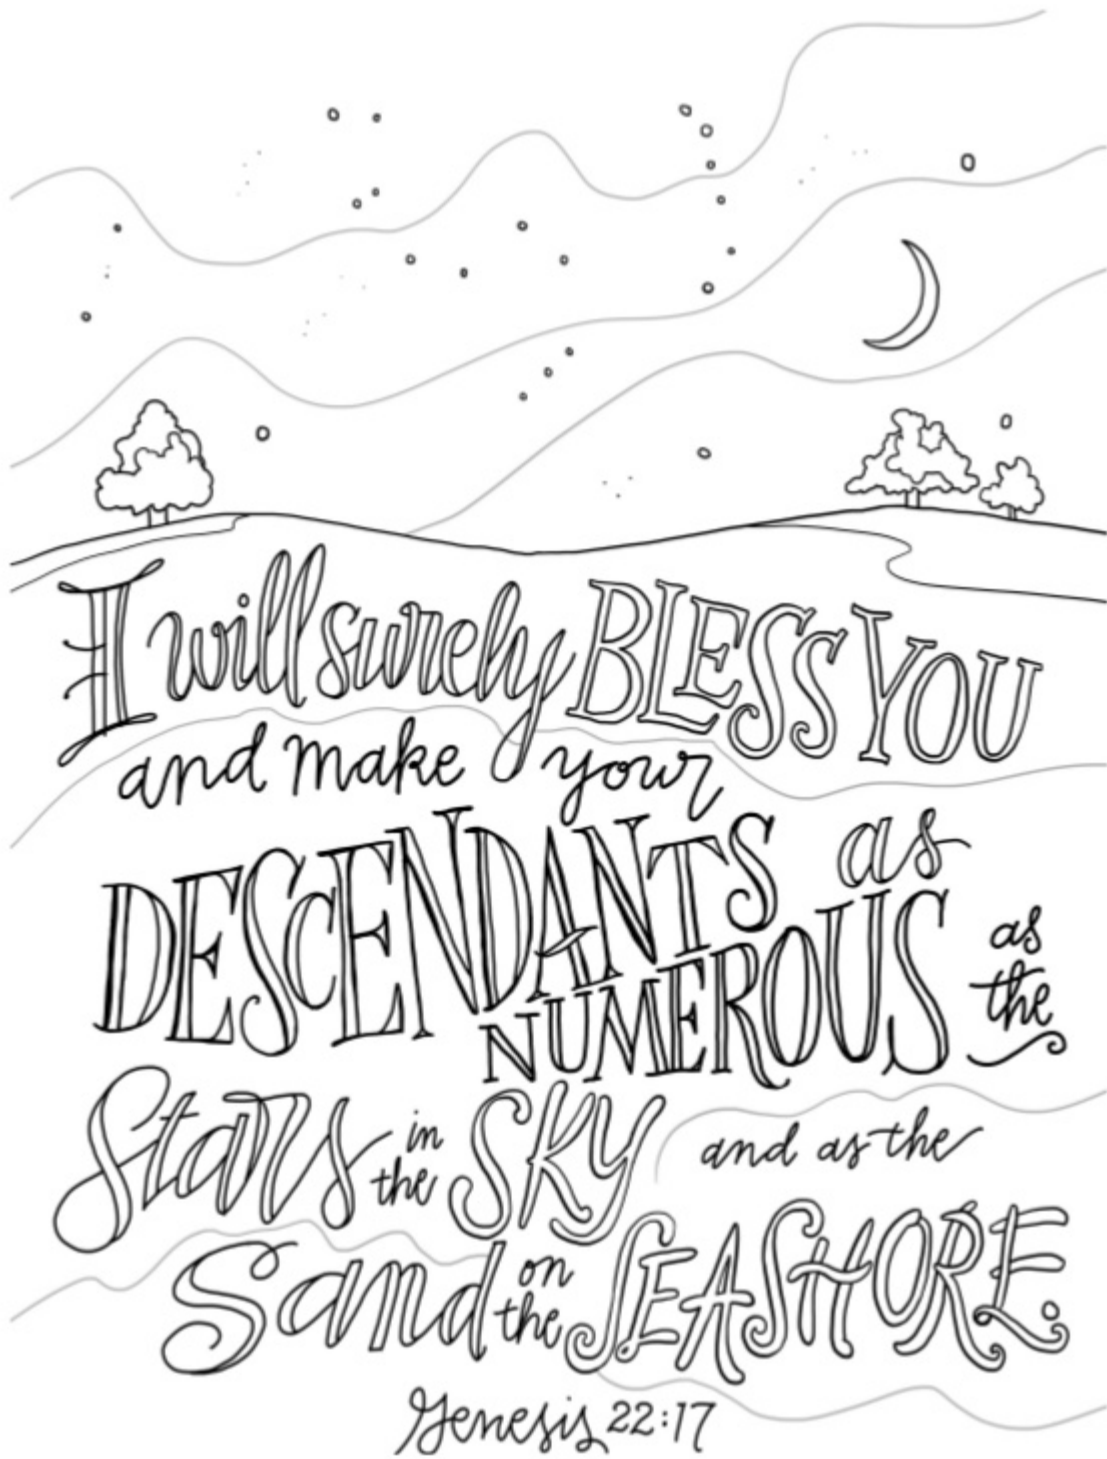 I will surely BLESS YOU
and make your
DESCENDANTS as
NUMEROUS as the
Stars in the SKY and as the
Sand on the SEASHORE.
Genesis 22:17